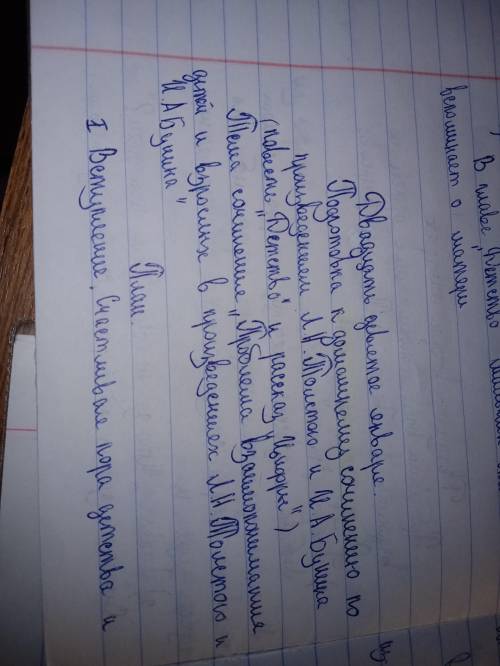 В главе "Детство"
вспоминает о матери
Двадцать девятое января.
Подготовка к домашнему сочинению по
произведениям Л.Н.Толстого и И.А.Бунина
(повесть "Детство" и рассказ "Цифры")
Тема сочинения "Проблема взаимопонимания
детей и взрослых в произведениях Л.Н.Толстого и
И.А.Бунина"
План.
I Вступление. Счастливая пора детства и